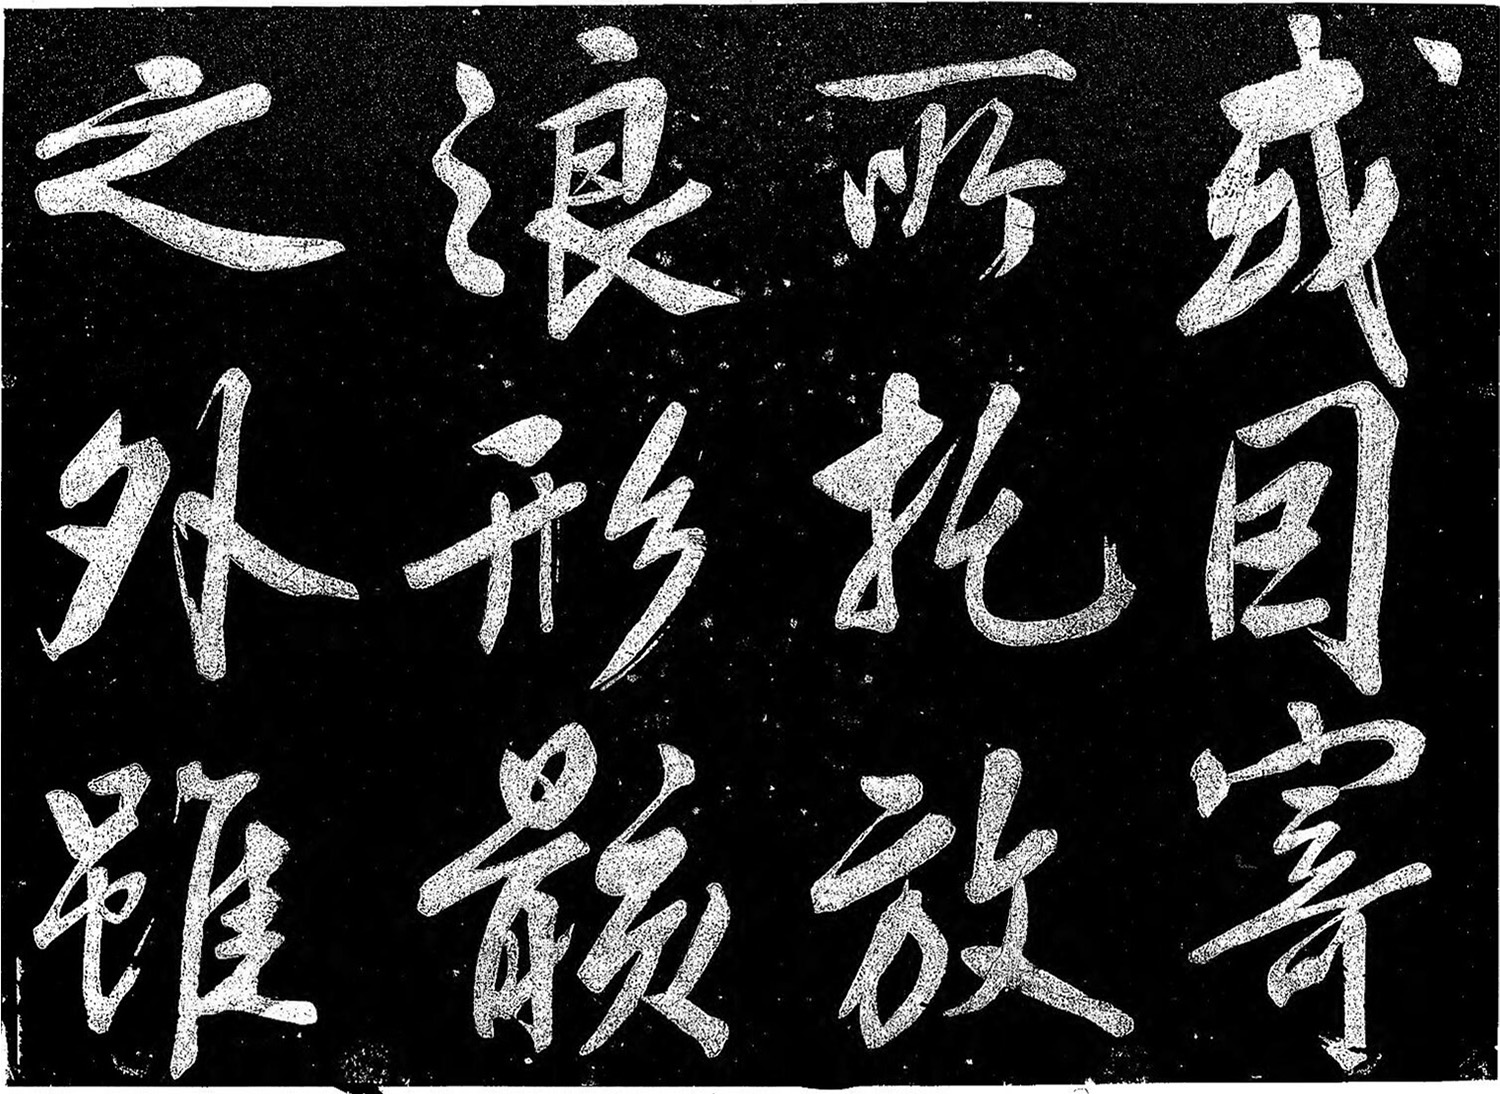 或因寄
所托放
浪形骸
之外雖